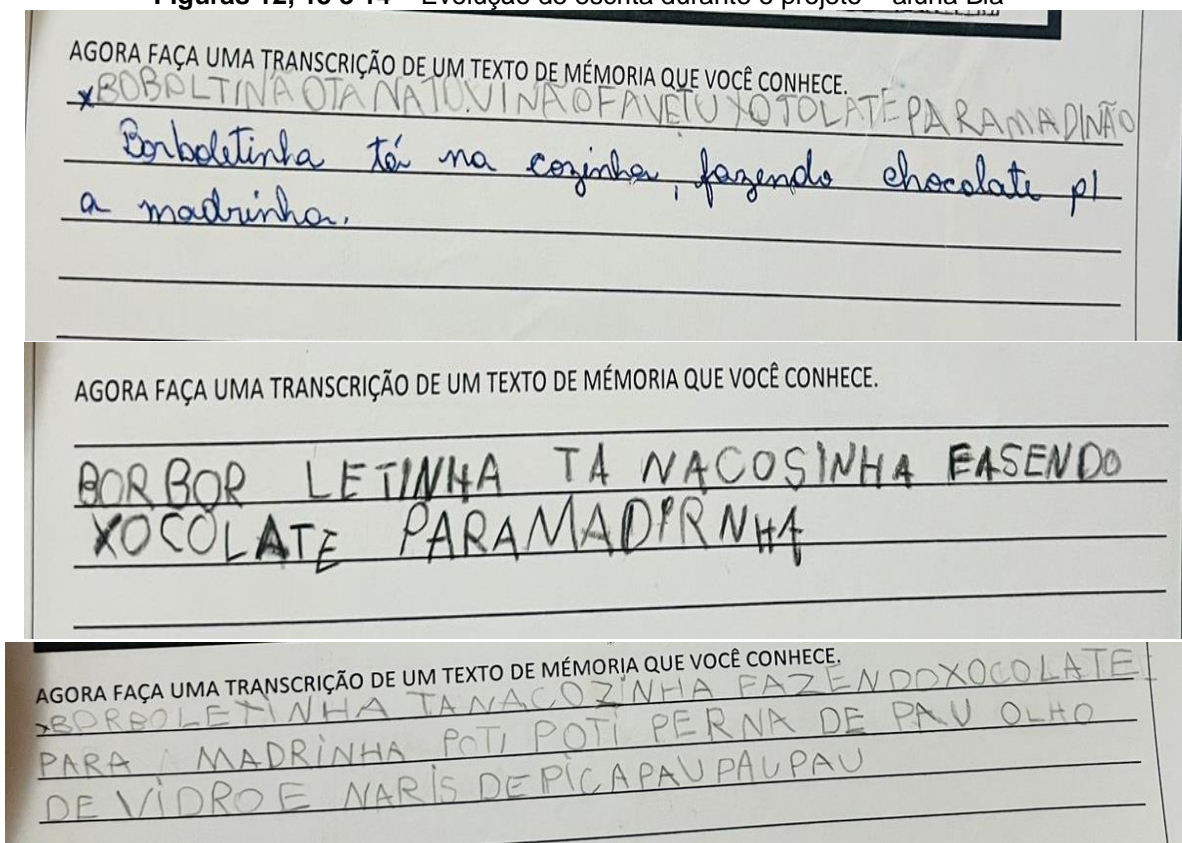 Figuras 12, 13 e 14 – Evolução do escrita durante o projeto – aluna Bia
AGORA FAÇA UMA TRANSCRIÇÃO DE UM TEXTO DE MÉMORIA QUE VOCÊ CONHECE.
xBOBOLTINAOTA NATOVINAOFAVETU XOTOLATE PARAMADINÃO
Borboletinha tá na cozinha, fazendo chocolate p/
a madrinha.
AGORA FAÇA UMA TRANSCRIÇÃO DE UM TEXTO DE MÉMORIA QUE VOCÊ CONHECE.
BORBOR LETINHA TA NACOSINHA FASENDO
XOCOLATE PARAMADIRNHA
AGORA FAÇA UMA TRANSCRIÇÃO DE UM TEXTO DE MÉMORIA QUE VOCÊ CONHECE.
xBORBOLETINHA TANACOZINHA FAZENDOXOCOLATE
PARA MADRINHA POTI POTI PERNA DE PAU OLHO
DE VIDRO E NARIS DEPICAPAUPAUPAU